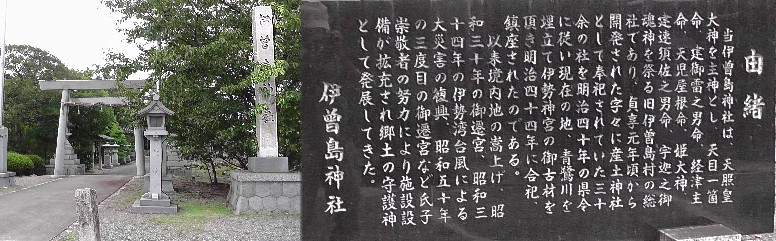 伊曽島神社
由緒
当伊曽島神社は、天照皇
大神を主神とし、天目一箇
命、建御雷之男命、経津主
命、天児屋根命、姫大神、
建速須佐之男命、宇迦之御
魂神を祭る旧伊曽島村の総
社であり、貞享元年頃から
開発された字々に産土神社
として奉祀されていた三十
余の社を明治四十年の県令
に従い現在の地、青鷺川を
埋立て伊勢神宮の御古材を
頂き明治四十四年に合祀、
鎮座されたのである。
以来境内地の嵩上げ、昭
和三十年の御遷宮、昭和三
十四年の伊勢湾台風による
大災害の復興、昭和五十年
の三度目の御遷宮など氏子
崇敬者の努力により施設設
備が拡充され郷土の守護神
として発展してきた。
伊曽島神社